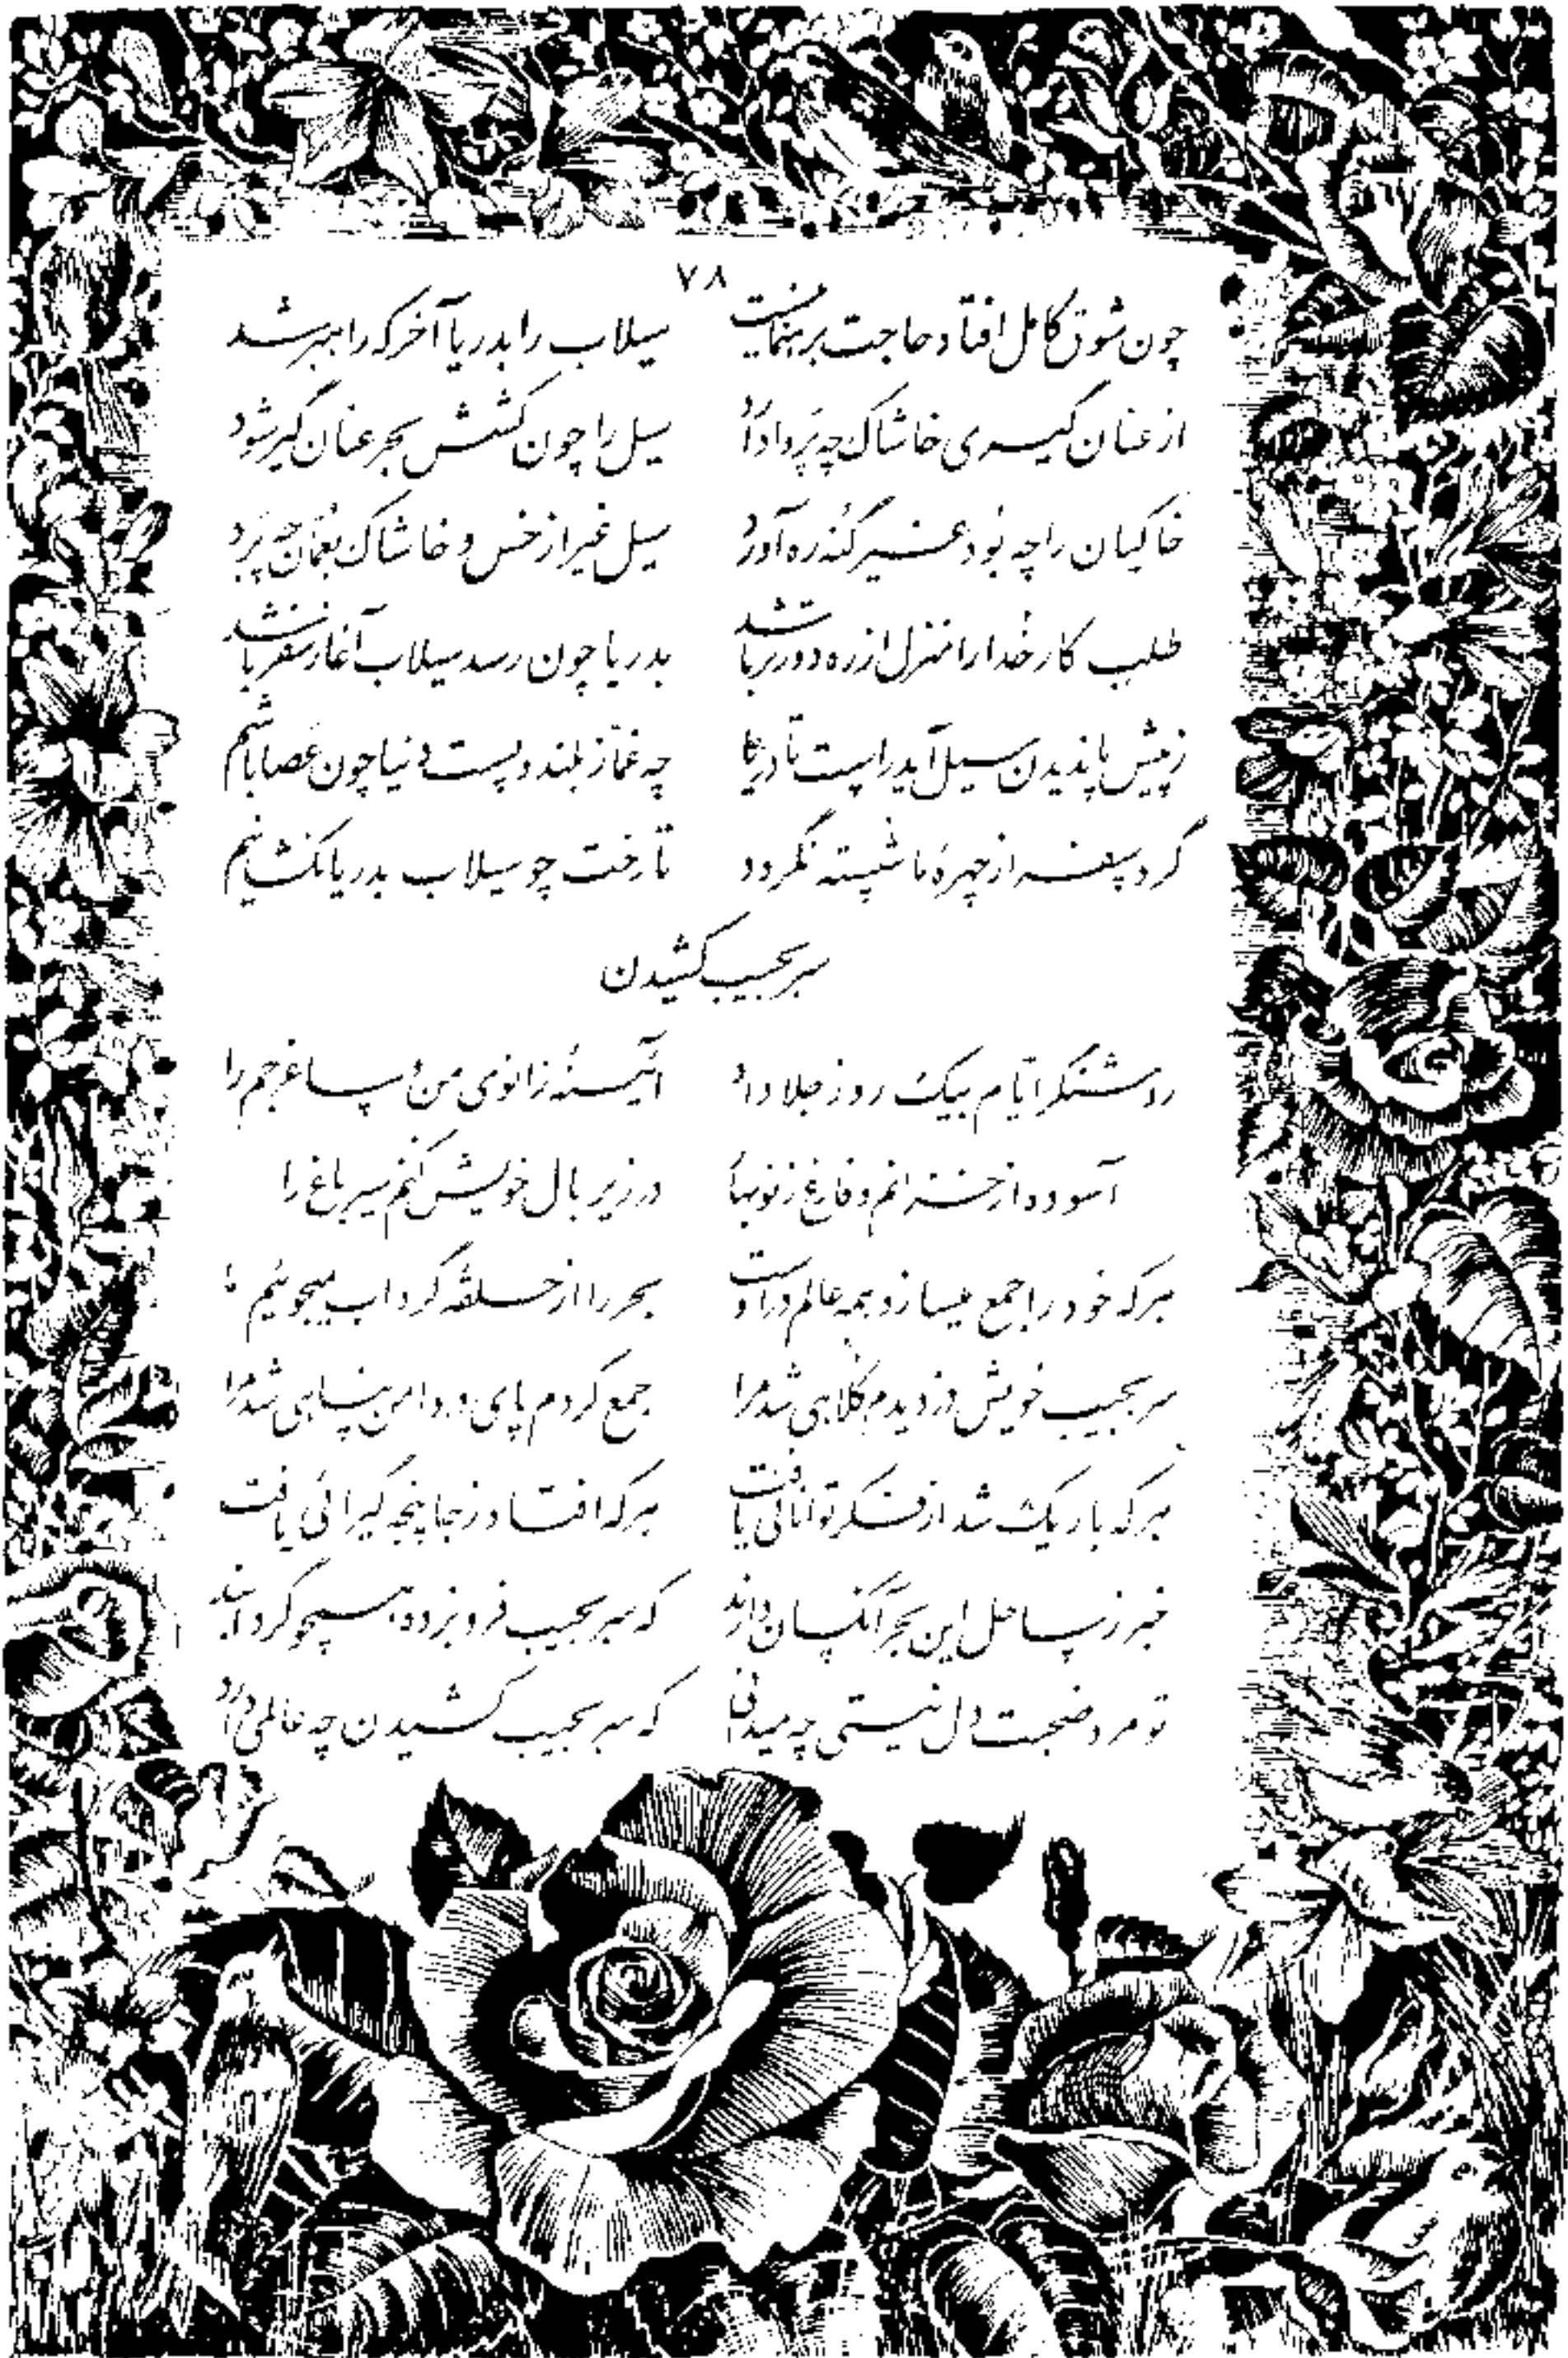 ۷۸
چون شوق کامل افتاد حاجت برهنما نیست سیلاب را بدریا آخر که راهبر شد
از عنان گیری خاشاک چه پروا دارد سیل را چون کشش بحر عنان گیر شود
خاکیان را چه بود غیر گنه ره آورد سیل غیر از خس و خاشاک بعمان چه برد
طلب کار خدا را منزل از ره دورتر باشد بدریا چون رسد سیلاب آغاز سفر باشد
ز پیش پا ندیدن سیل آید راست تا دریا چه غماز بلند و پست دنیا چون عصا باشم
گرد سفر از چهرهٔ ما شسته نگردد تا رخت چو سیلاب بدریا نکشانیم
سر بجیب کشیدن
روشنگر ایام بیک روز جلا داد آئینهٔ زانوی من و ساغر جم را
آسوده از خزانم و فارغ ز نوبهار در زیر بال خویش کنم سیر باغ را
هرکه خود را جمع میسازد همه عالم در اوست بحر را از حلقهٔ گرداب میجوئیم ما
سر بجیب خویش دزدیدم کلاهی شد مرا جمع کردم پای در دامن پناهی شد مرا
هرکه باریک شد از فکر توانائی یافت هرکه افتاد ز جا پنجهٔ گیرائی یافت
خبر ز ساحل این بحر آنکسان دارند که سر بجیب فرو برده همچو گردابند
تو مرد صحبت دل نیستی چه میدانی که سر بجیب کشیدن چه عالمی دارد